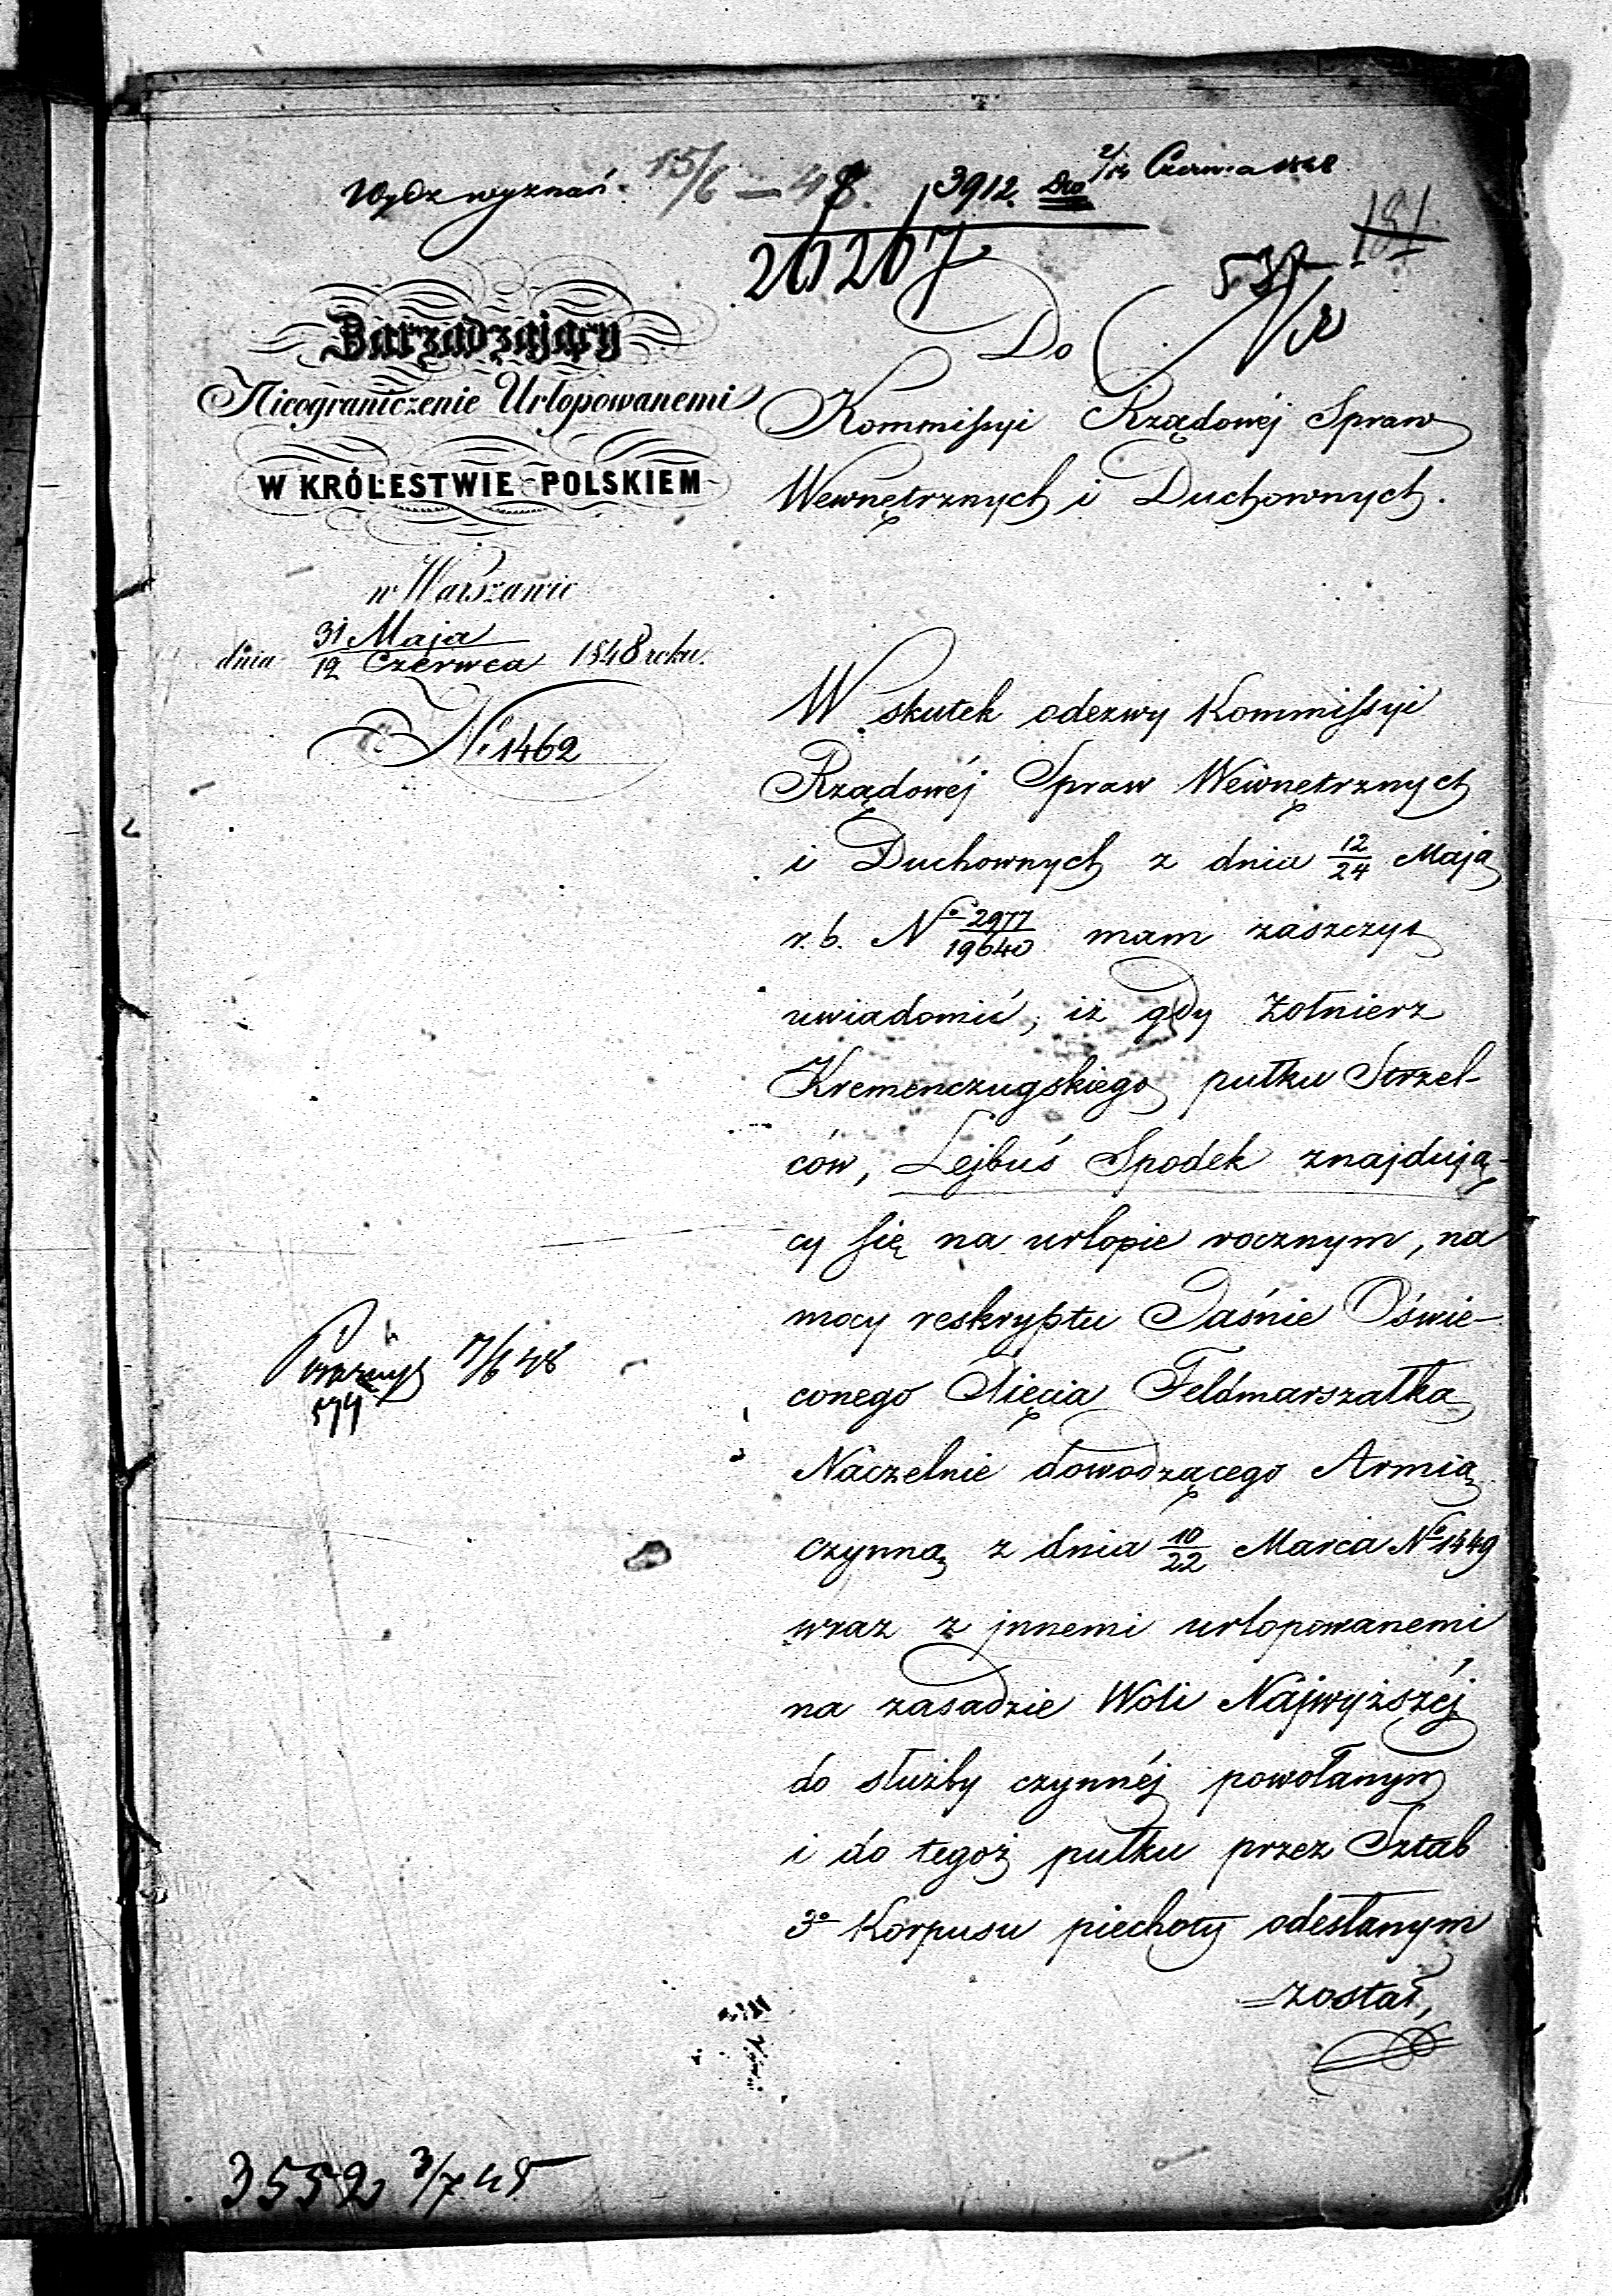 Wydz wyznań. 15/6 — 48. 3912. Dro 2/14 Czerwca 1848
20207
181
Zarządzający
Nieograniczenie Urlopowanemi
W KRÓLESTWIE POLSKIEM
w Warszawie
dnia 31 Maja / 12 Czerwca 1848 roku.
No 1462
Do
Kommissyi Rządowéj Spraw
Wewnętrznych i Duchownych.
W skutek odezwy Kommissyi
Rządowéj Spraw Wewnętrznych
i Duchownych z dnia 12/24 Maja
r. b. No 2977/19640 mam zaszczyt
uwiadomić, iż gdy Żołnierz
Kremenczugskiego pułku Strzel-
ców, Lejbuś Spodek znajdują-
cy się na urlopie rocznym, na
mocy reskryptu Jaśnie Oświe-
conego Xięcia Feldmarszałka
Naczelnie dowodzącego Armią
czynną z dnia 10/22 Marca No 1449
wraz z innemi urlopowanemi
na zasadzie Woli Najwyższéj
do służby czynnéj powołanym
i do tegoż pułku przez Sztab
3o Korpusu piechoty odesłanym
został,
17/6 48
3552 3/7 48